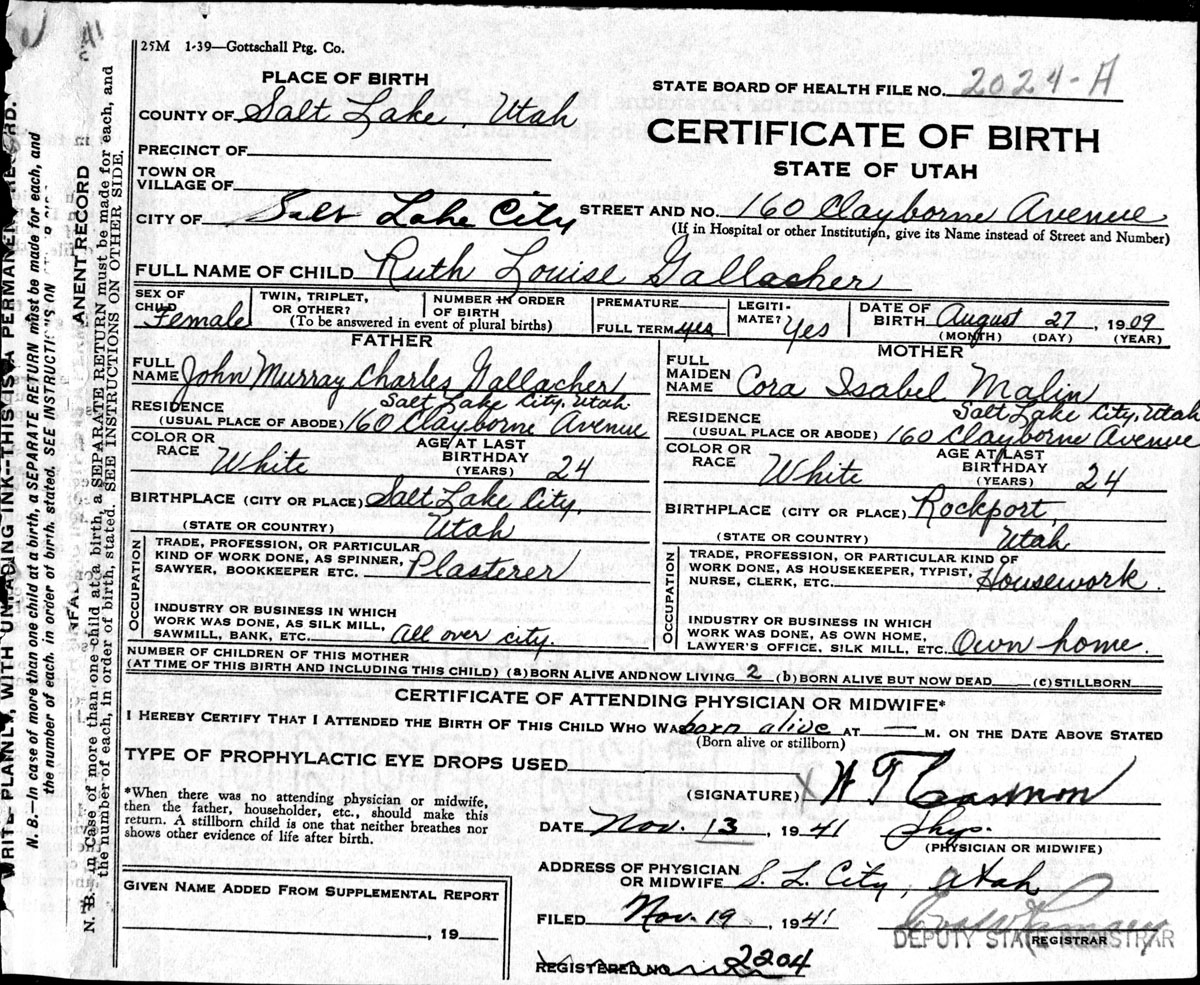 25M 1-39—Gottschall Ptg. Co.
PLACE OF BIRTH
STATE BOARD OF HEALTH FILE NO. 2024-A
COUNTY OF Salt Lake Utah
CERTIFICATE OF BIRTH
STATE OF UTAH
PRECINCT OF
TOWN OR
VILLAGE OF
CITY OF Salt Lake City STREET AND NO. 160 Clayborne Avenue
(If in Hospital or other Institution, give its Name instead of Street and Number)
FULL NAME OF CHILD Ruth Louise Gallacher
SEX OF
CHILD Female
TWIN, TRIPLET,
OR OTHER?
NUMBER IN ORDER
OF BIRTH
(To be answered in event of plural births)
PREMATURE
FULL TERM yes
LEGITI-
MATE? Yes
DATE OF
BIRTH August 27, 1909
(MONTH) (DAY) (YEAR)
FATHER
FULL
NAME John Murray Charles Gallacher
Salt Lake City, Utah
RESIDENCE
(USUAL PLACE OF ABODE) 160 Clayborne Avenue
COLOR OR
RACE White
AGE AT LAST
BIRTHDAY
(YEARS) 24
BIRTHPLACE (CITY OR PLACE) Salt Lake City,
(STATE OR COUNTRY) Utah
OCCUPATION
TRADE, PROFESSION, OR PARTICULAR
KIND OF WORK DONE, AS SPINNER,
SAWYER, BOOKKEEPER ETC. Plasterer
INDUSTRY OR BUSINESS IN WHICH
WORK WAS DONE, AS SILK MILL,
SAWMILL, BANK, ETC. All over city.
MOTHER
FULL
MAIDEN
NAME Cora Isabel Malin
Salt Lake City, Utah
RESIDENCE
(USUAL PLACE OR ABODE) 160 Clayborne Avenue
COLOR OR
RACE White
AGE AT LAST
BIRTHDAY
(YEARS) 24
BIRTHPLACE (CITY OR PLACE) Rockport,
(STATE OR COUNTRY) Utah
OCCUPATION
TRADE, PROFESSION, OR PARTICULAR KIND OF
WORK DONE, AS HOUSEKEEPER, TYPIST,
NURSE, CLERK, ETC. Housework.
INDUSTRY OR BUSINESS IN WHICH
WORK WAS DONE, AS OWN HOME,
LAWYER'S OFFICE, SILK MILL, ETC. Own home.
NUMBER OF CHILDREN OF THIS MOTHER
(AT TIME OF THIS BIRTH AND INCLUDING THIS CHILD) (a) BORN ALIVE AND NOW LIVING 2 (b) BORN ALIVE BUT NOW DEAD (c) STILLBORN
CERTIFICATE OF ATTENDING PHYSICIAN OR MIDWIFE*
I HEREBY CERTIFY THAT I ATTENDED THE BIRTH OF THIS CHILD WHO WAS born alive AT — M. ON THE DATE ABOVE STATED
(Born alive or stillborn)
TYPE OF PROPHYLACTIC EYE DROPS USED
*When there was no attending physician or midwife,
then the father, householder, etc., should make this
return. A stillborn child is one that neither breathes nor
shows other evidence of life after birth.
(SIGNATURE) X W T Cannon
DATE Nov. 13, 1941 Phys.
(PHYSICIAN OR MIDWIFE)
ADDRESS OF PHYSICIAN
OR MIDWIFE S. L. City, Utah
FILED Nov. 19, 1941
DEPUTY STATE REGISTRAR
REGISTRAR
REGISTERED NO. 2204
GIVEN NAME ADDED FROM SUPPLEMENTAL REPORT
, 19
WRITE PLAINLY, WITH UNFADING INK—THIS IS A PERMANENT RECORD.
N. B.—In case of more than one child at a birth, a SEPARATE RETURN must be made for each, and
the number of each, in order of birth, stated. SEE INSTRUCTIONS ON
ANENT RECORD
N. B. in Case of more than one child at a birth, a SEPARATE RETURN must be made for each, and
the number of each, in order of birth, stated. SEE INSTRUCTIONS ON OTHER SIDE.